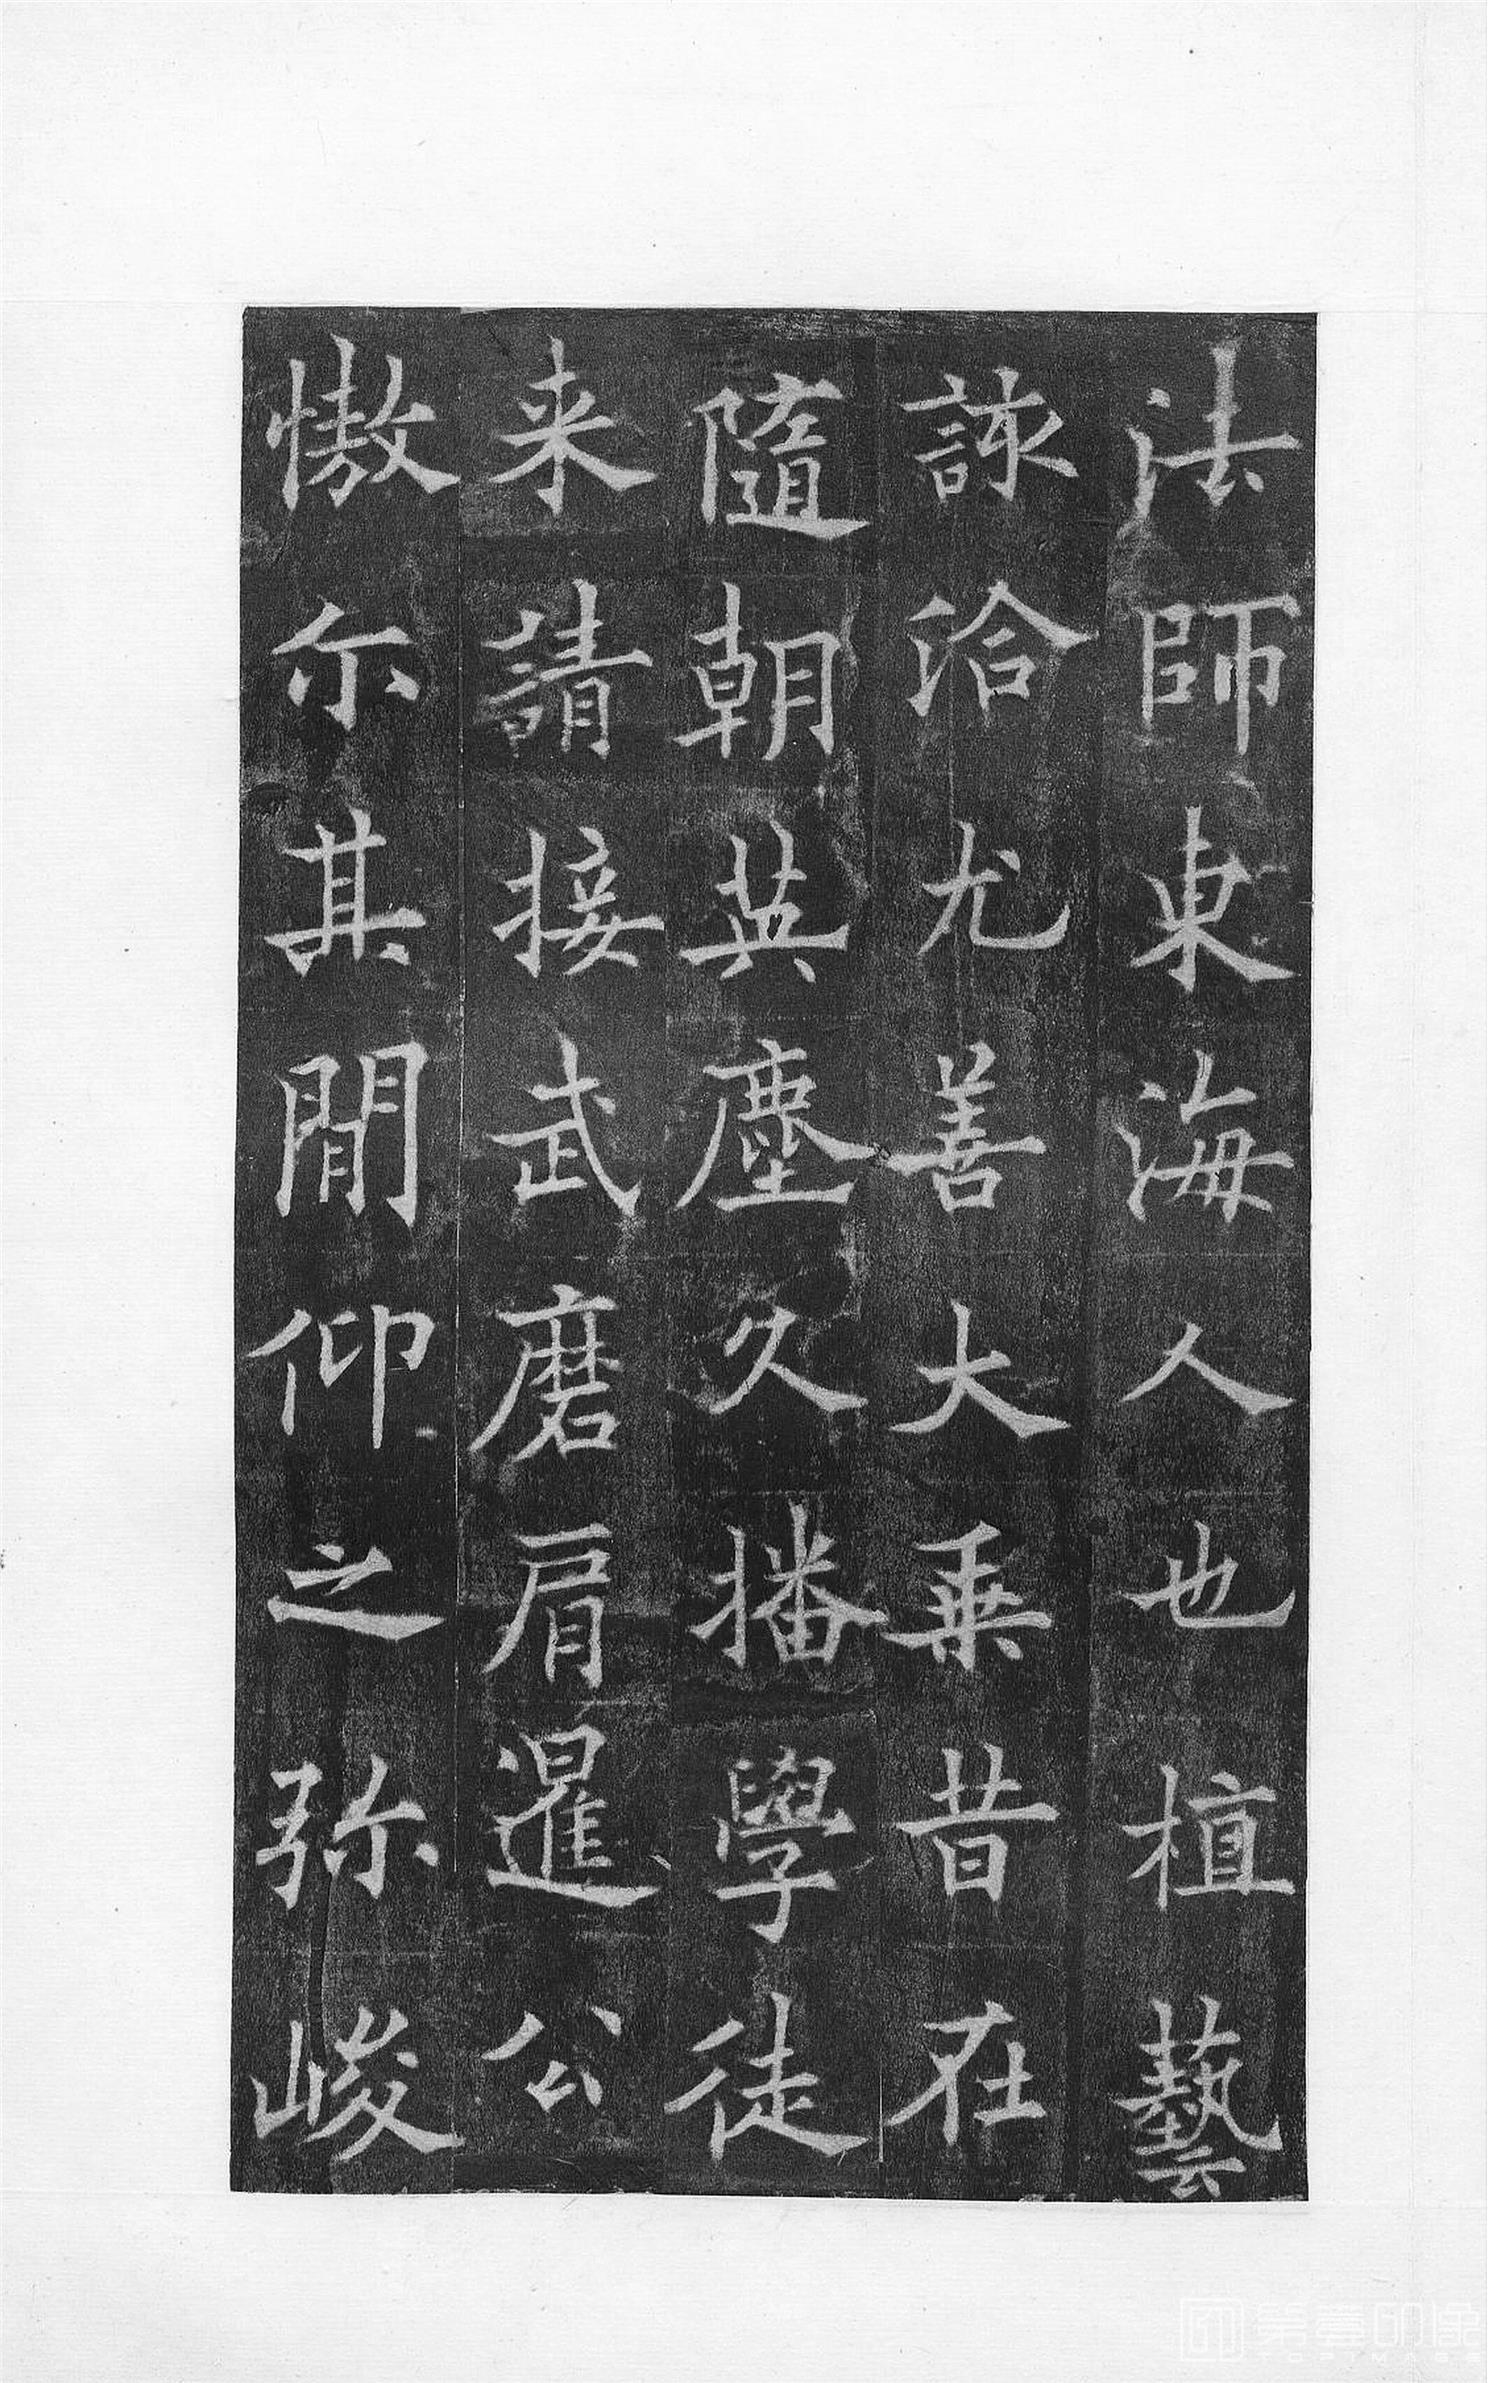 法師東海人也植藝
該洽尤善大乗昔在
隨朝英塵久播學徒
来請接武磨肩暹公
慠尒其間仰之弥峻
第壹印像
TOPIMAGE